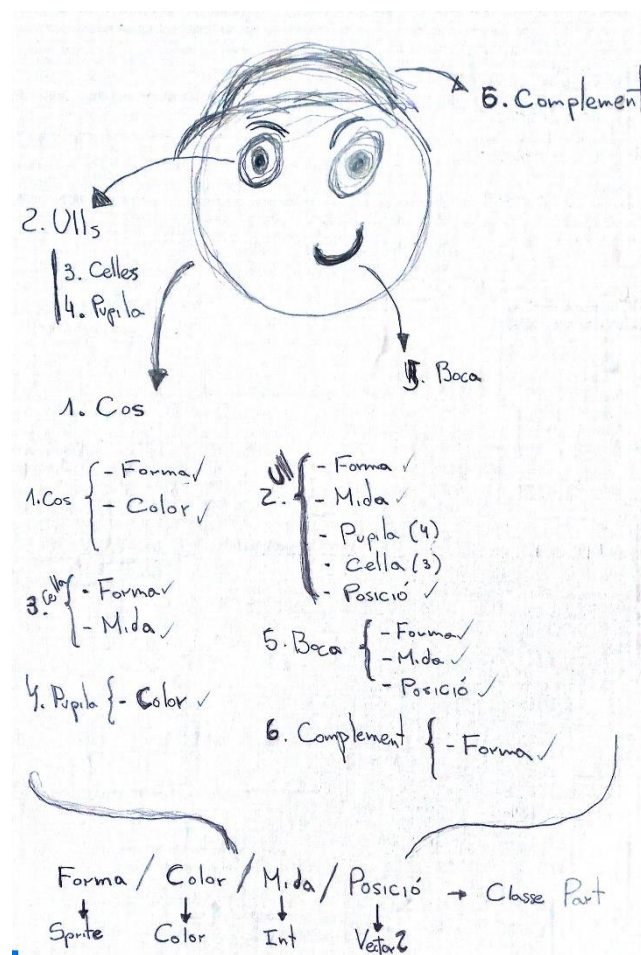 6. Complement
2. Ulls
3. Celles
4. Pupila
5. Boca
1. Cos
1. Cos { - Forma ✓
- Color ✓
2. Ull { - Forma ✓
- Mida ✓
- Pupila (4)
- Cella (3)
- Posició ✓
3. Cella { - Forma ✓
- Mida ✓
5. Boca { - Forma ✓
- Mida ✓
- Posició ✓
4. Pupila { - Color ✓
6. Complement { - Forma ✓
Forma / Color / Mida / Posició → Classe Part
Sprite Color Int Vector2